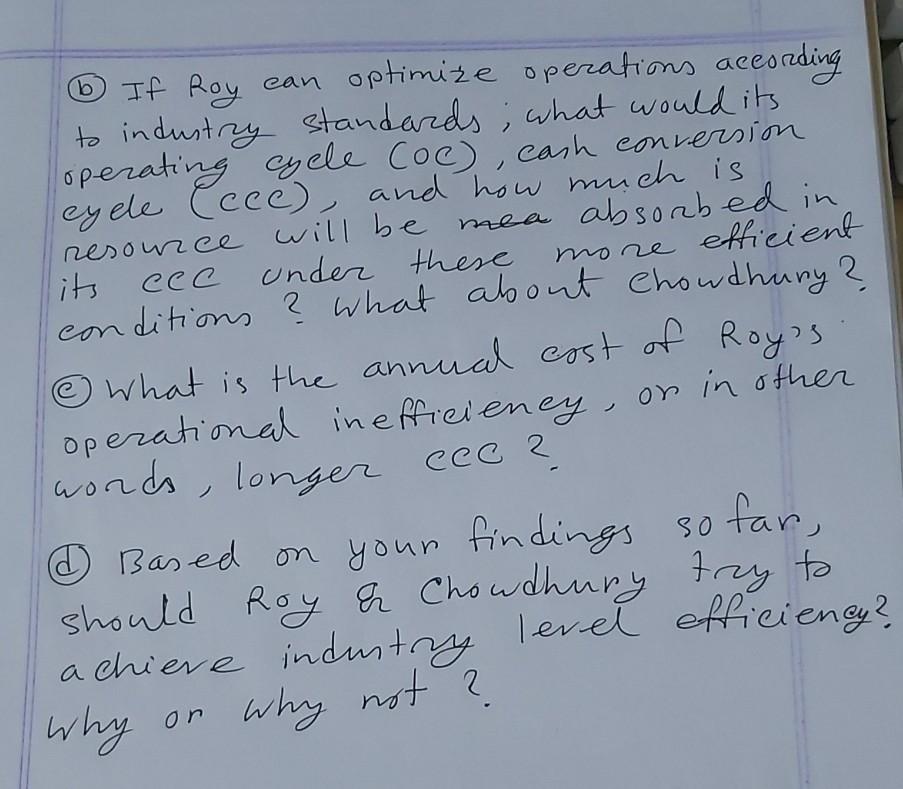 ⓑ If Roy can optimize operations according
to industry standards, what would its
operating cycle (OC), cash conversion
cycle (CCC), and how much is
resource will be mea absorbed in
its CCC under these more efficient
conditions? What about Chowdhury?
ⓒ What is the annual cost of Roy's
operational inefficiency, or in other
words, longer CCC?
ⓓ Based on your findings so far,
should Roy & Chowdhury try to
achieve industry level efficiency?
Why or why not?